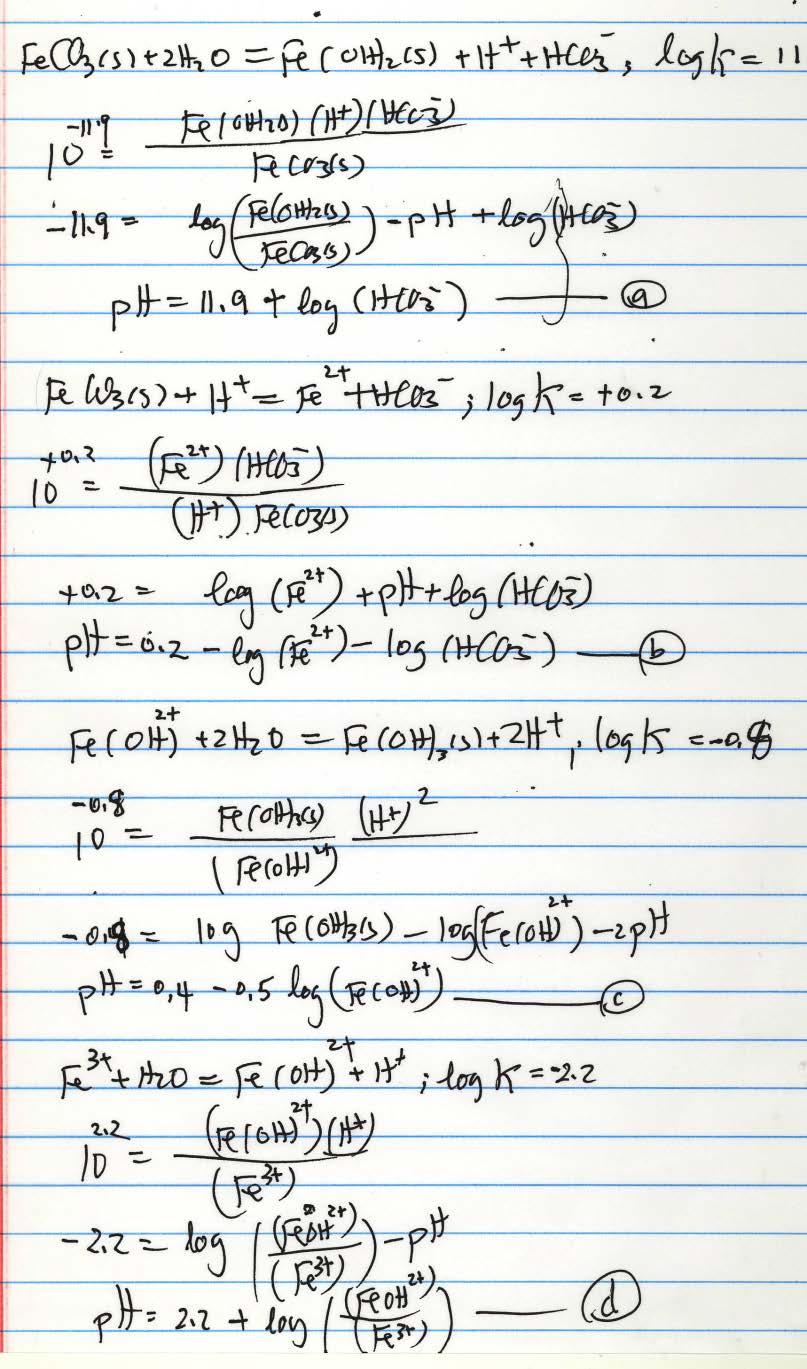 FeCO3(s) + 2H2O = Fe(OH)2(s) + H+ + HCO3-, log K = 11
10^-11.9 = Fe(OH)2(s) (H+)(HCO3-) / FeCO3(s)
-11.9 = log(Fe(OH)2(s) / FeCO3(s)) - pH + log(HCO3-)
pH = 11.9 + log(HCO3-) — (a)
FeCO3(s) + H+ = Fe2+ + HCO3-; log K = +0.2
10^+0.2 = (Fe2+)(HCO3-) / (H+) FeCO3(s)
+0.2 = log(Fe2+) + pH + log(HCO3-)
pH = 0.2 - log(Fe2+) - log(HCO3-) — (b)
Fe(OH)2+ + 2H2O = Fe(OH)3(s) + 2H+, log K = -0.8
10^-0.8 = Fe(OH)3(s) (H+)2 / (Fe(OH)2+)
-0.8 = log Fe(OH)3(s) - log(Fe(OH)2+) - 2pH
pH = 0.4 - 0.5 log(Fe(OH)2+) — (c)
Fe3+ + H2O = Fe(OH)2+ + H+; log K = -2.2
10^2.2 = (Fe(OH)2+)(H+) / (Fe3+)
-2.2 = log((FeOH2+) / (Fe3+)) - pH
pH = 2.2 + log((FeOH2+) / (Fe3+)) — (d)